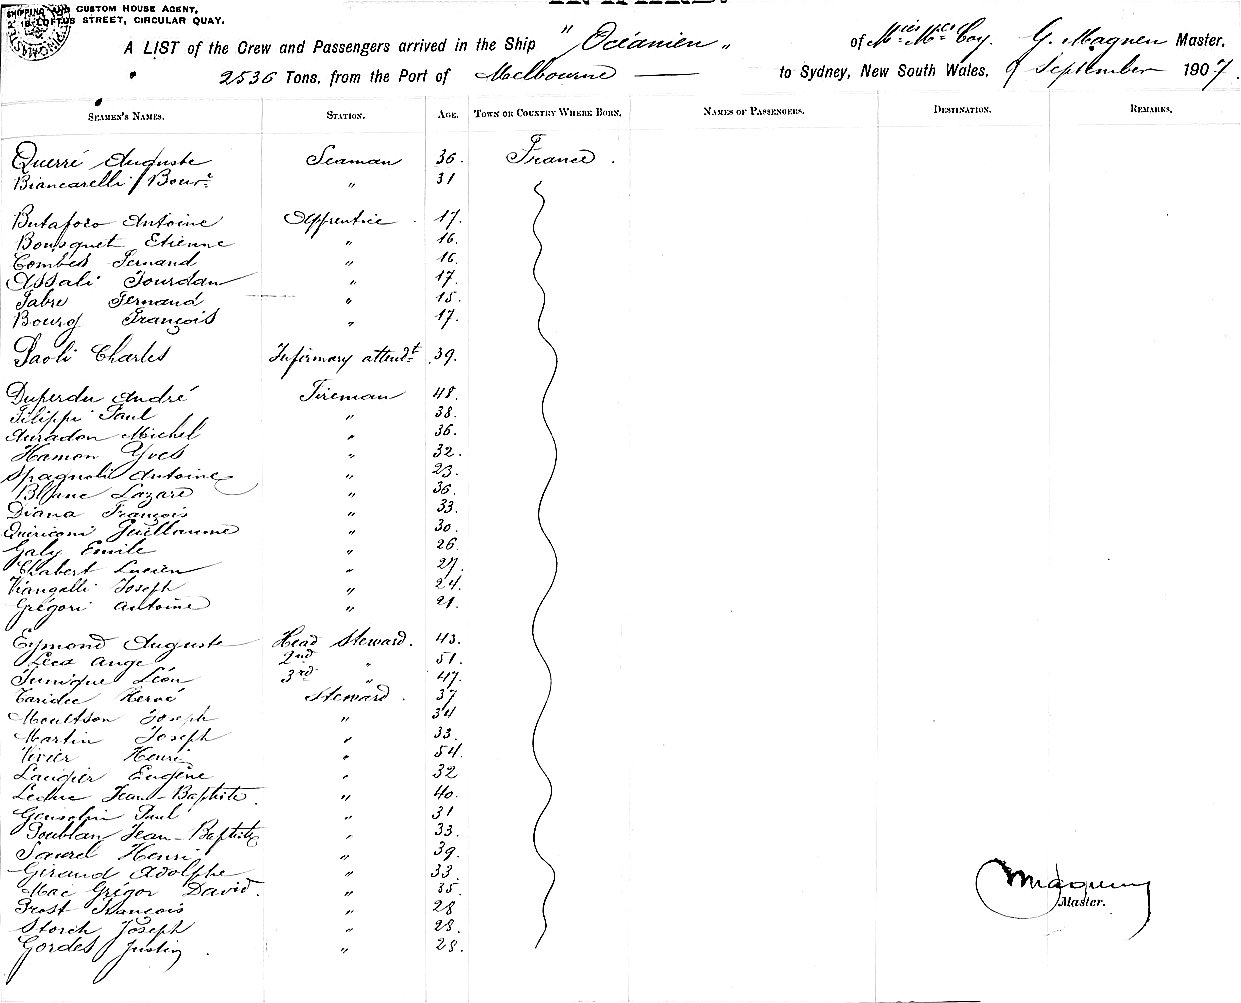 CUSTOM HOUSE AGENT,
STREET, CIRCULAR QUAY.
A LIST of the Crew and Passengers arrived in the Ship "Océanien" of M^ies M^mes Coy. G. Magnen Master,
2536 Tons, from the Port of Melbourne to Sydney, New South Wales, 9 September 1907.
SEAMEN'S NAMES. STATION. AGE. TOWN OR COUNTRY WHERE BORN. NAMES OF PASSENGERS. DESTINATION. REMARKS.
Querré Auguste Seaman 36. France.
Biancarelli Bour^e " 31
Butafoco Antoine Apprentice 17.
Bousquet Etienne " 16.
Combes Fernand " 16.
Assali Jourdan " 17.
Fabre Fernand " 15.
Bourg François " 17.
Paoli Charles Infirmary attend^t 39.
Duperdu André Fireman 48.
Filippi Paul " 38.
Auradon Michel " 36.
Hamon Yves " 32.
Spagnoli Antoine " 23.
Blanc Lazare " 36.
Diana François " 33.
Quiriconi Guillaume " 30.
Galy Emile " 26
Chabert Lucien " 27.
Viangalli Joseph " 24.
Grégori Antoine " 21.
Eymond Auguste Head Steward. 43.
Leca Ange 2nd " 51.
Junique Léon 3rd " 47.
Taridec Hervé Steward. 37
Moultson Joseph " 34
Martin Joseph " 33.
Vivier Henri " 54.
Laugier Eugène " 32
Leduc Jean-Baptiste. " 40.
Gensolin Paul " 31
Doublan Jean-Baptiste " 33.
Saurel Henri " 39.
Giraud Adolphe " 33.
Mac Grégor David. " 35.
Prost François " 28
Storch Joseph " 28.
Gordes Justin. " 28.
Magnen
Master.